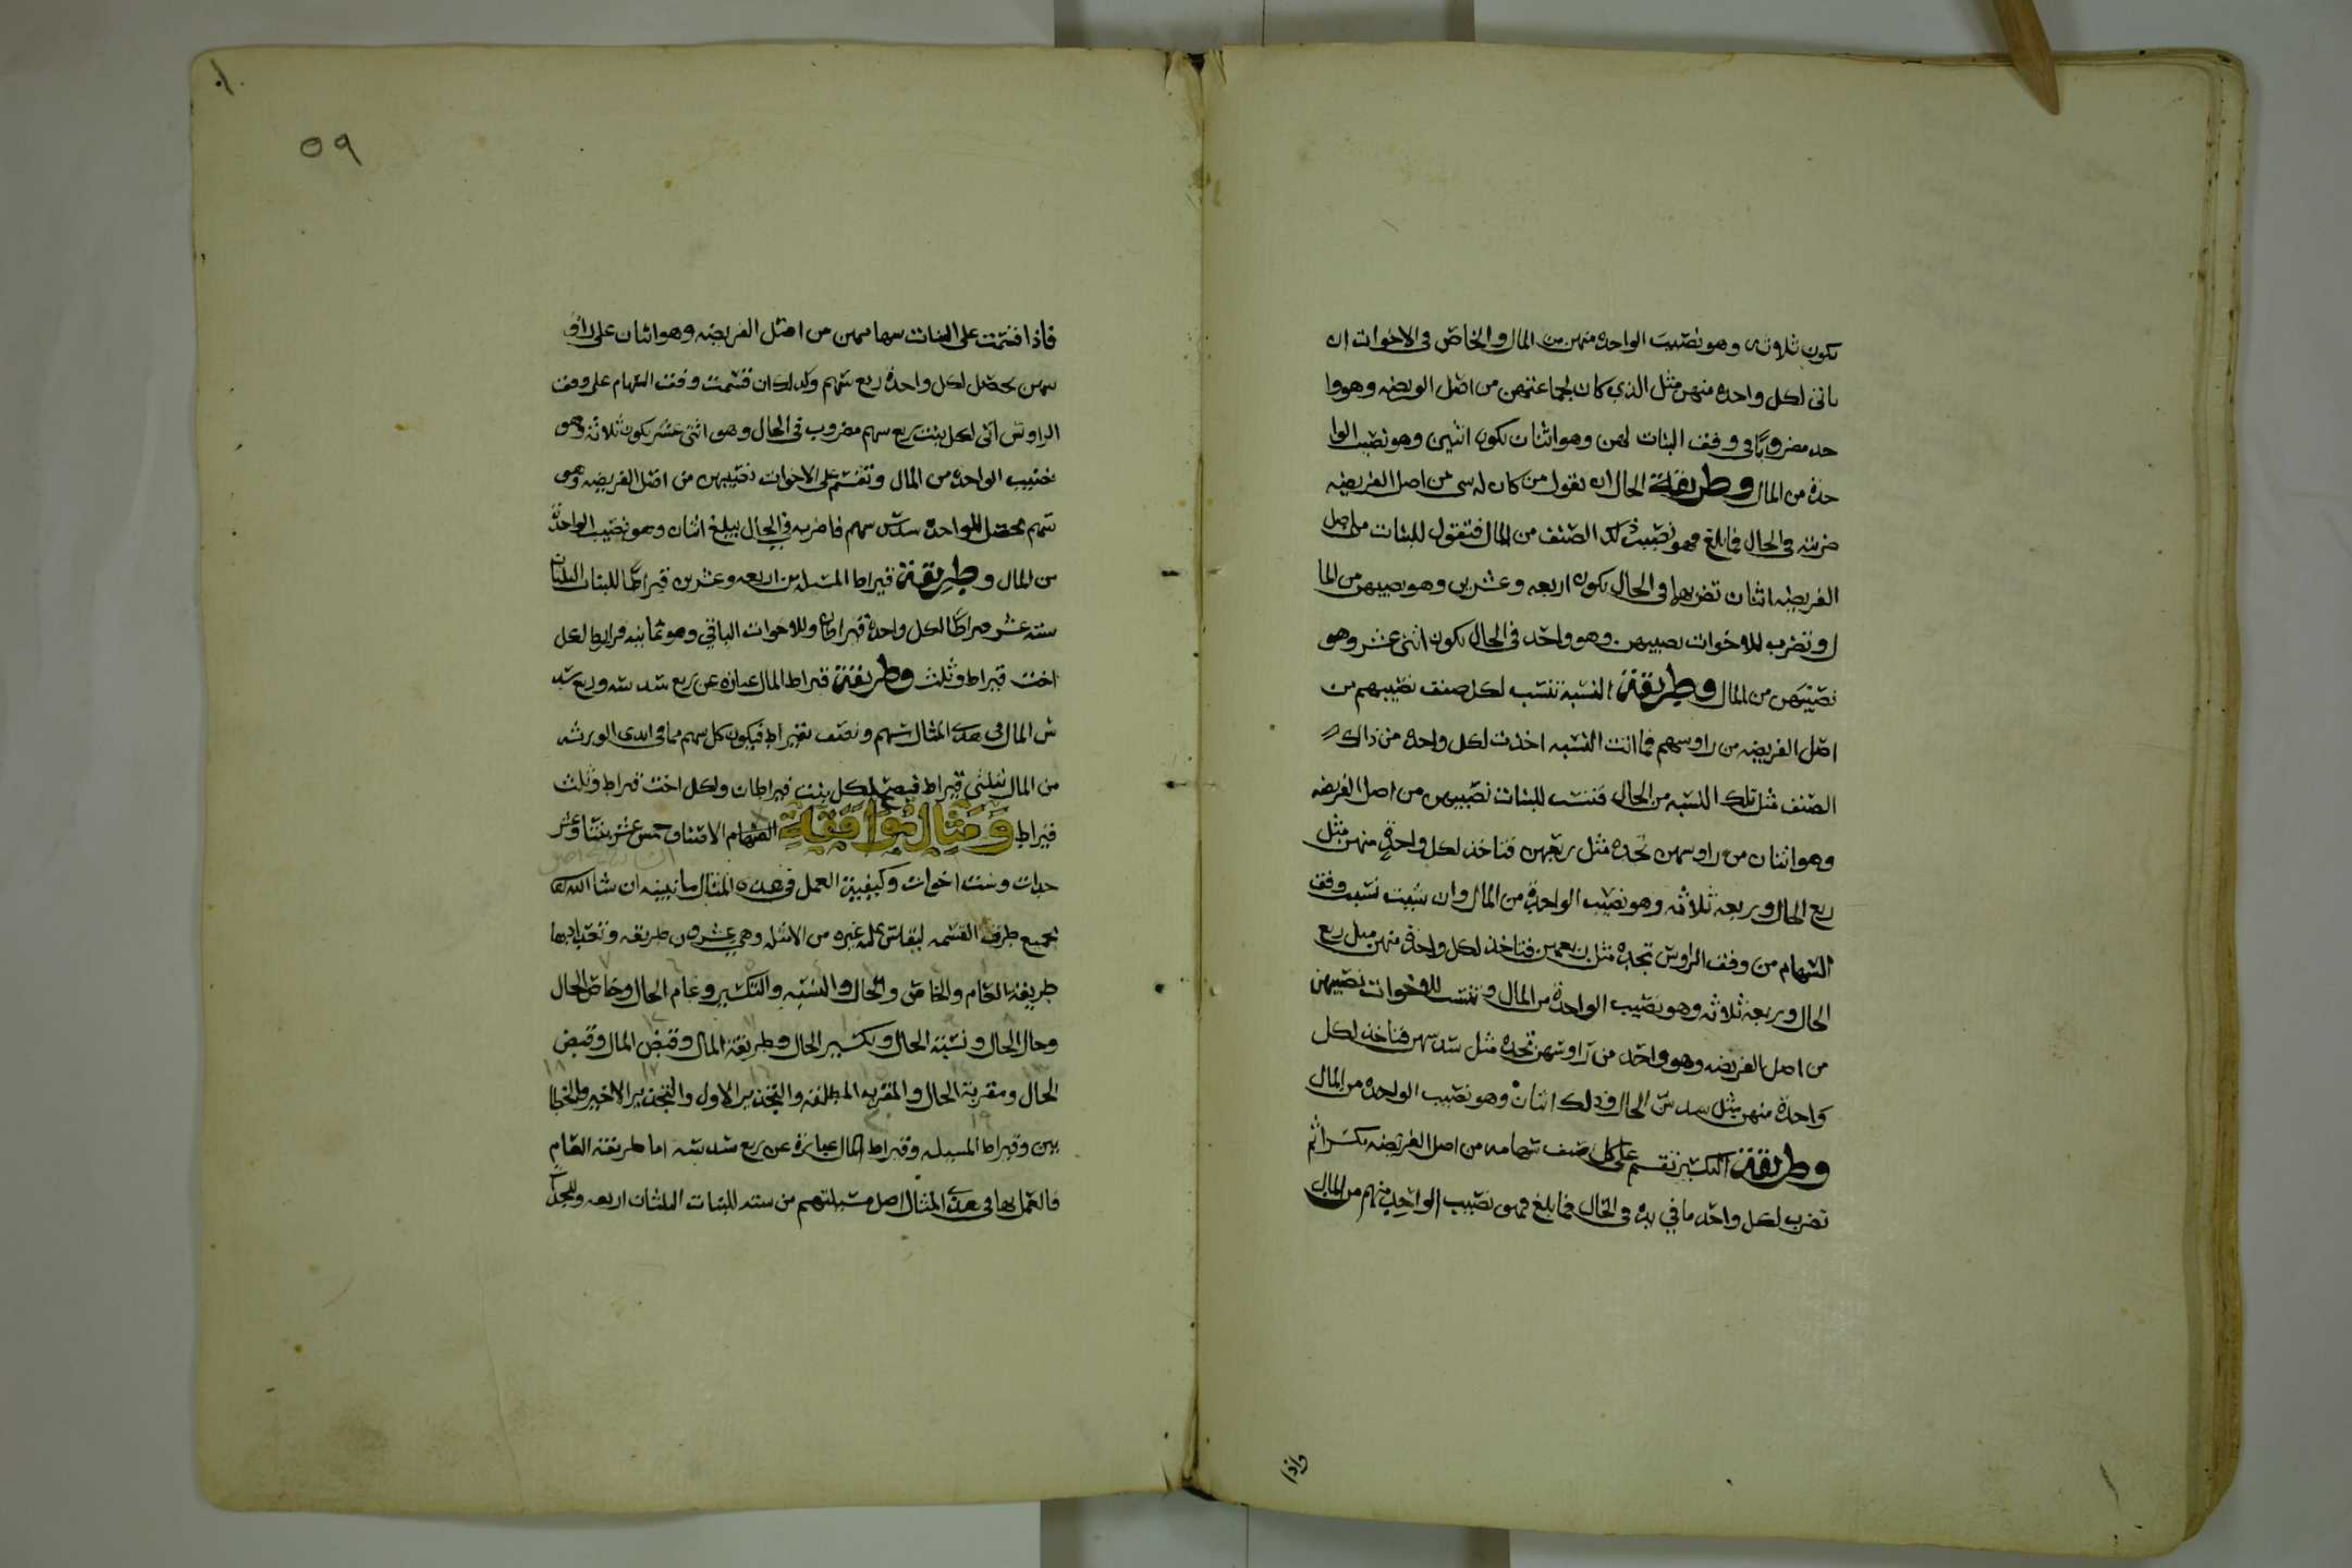 يكون ثلاثه وهو نصيب الواحده منهن من المال والخاص في الاخوات ان
ياتي لكل واحده منهن مثل الذي كان لجماعتهن من اصل الفريضه وهو وا
حد مضروبًا في وفق البنات لهن وهو اثنان يكون اثنين وهو نصيب الوا
حدة من المال وطريقة الحال ان تقول من كان له شي من اصل الفريضه
ضربته في الحال فما بلغ فهو نصيب ذلك الصنف من المال فتقول للبنات من اصل
الفريضه اثنان تضربها في الحال يكون اربعه وعشرين وهو نصيبهن من الما
ل وتضرب للاخوات نصيبهن وهو واحد في الحال يكون اثنى عشر وهو
نصيبهن من المال وطريقة النسبة تنسب لكل صنف نصيبهم من
اصل الفريضه من راوسهم فما اتت النسبه اخذت لكل واحده من ذلك
الصنف مثل تلك النسبه من الحال فتنسب للبنات نصيبهن من اصل الفريضه
وهو اثنان من راوسهن تجده مثل ربعهن فتاخذ لكل واحدة منهن مثل
ربع الحال وربعه ثلاثه وهو نصيب الواحدة من المال وان شيت نسبت وفق
السهام من وفق الروس تجده مثل ربعهن فتاخذ لكل واحدة منهن مثل ربع
الحال وربعه ثلاثه وهو نصيب الواحدة من المال وتنسب للاخوات نصيبهن
من اصل الفريضه وهو واحد من راوسهن تجده مثل سدسهن فتاخذ لكل
واحدة منهن مثل سدس الحال وذلك اثنان وهو نصيب الواحده من المال
وطريقة التكسير تقسم على كل صنف سهامه من اصل الفريضه مكسرا ثم
تضرب لكل واحد ما في يده في الحال فما بلغ فهو نصيب الواحد منهم من المال
واذا
٥٩
فاذا قسمت على البنات سهامهن من اصل الفريضه وهو اثنان على راو
سهن يحصل لكل واحدة ربع سهم وكذلك ان قسمت وفق السهام على وفق
الراوس اتى لكل بنت ربع سهم مضروب في الحال وهو اثنى عشر يكون ثلاثة وهو
نصيب الواحده من المال وتقسم على الاخوات نصيبهن من اصل الفريضه وهو
سهم يحصل للواحده سدس سهم فاضربه في الحال يبلغ اثنان وهو نصيب الواحدة
من المال وطريقة قيراط المسله من اربعه وعشرين قيراطًا للبنات الثلثان
سته عشر قيراطًا لكل واحدة قيراطان وللاخوات الباقي وهو ثمانيه قراريط لكل
اخت قيراط وثلث وطريقة قيراط المال عباره عن ربع سدسه وربع سد
س المال في هذا المثال سهم ونصف بقيراط فيكون كل سهم مما في ايدي الورثه
من المال بثلثي قيراط فيصح لكل بنت قيراطان ولكل اخت قيراط وثلث
قيراط ومثال موافقة السهام الاصناف خمس عشر بنتا وعشر
جدات وست اخوات وكيفية العمل في هذه المثال ما نبينه ان شا الله تعا
بجميع طرق القسمه ليقاس عليه غيره من الامثله وهي عشرون طريقه وتعدادها
طريقة العام والخاص والحال والنسبه والتكسير وعام الحال وخاص الحال
وحال الحال ونسبة الحال وتكسير الحال وطريقة المال وقبض المال وقبض
الحال ومقربة الحال والمقربه المطلقه والتجذير الاول والتجذير الاخير والخطا
يين وقيراط المسيله وقيراط المال عبارة عن ربع سدسه اما طريقة العام
فالعمل بها في هذا المثال اصل مسيلتهم من سته للبنات الثلثان اربعه وللجدا